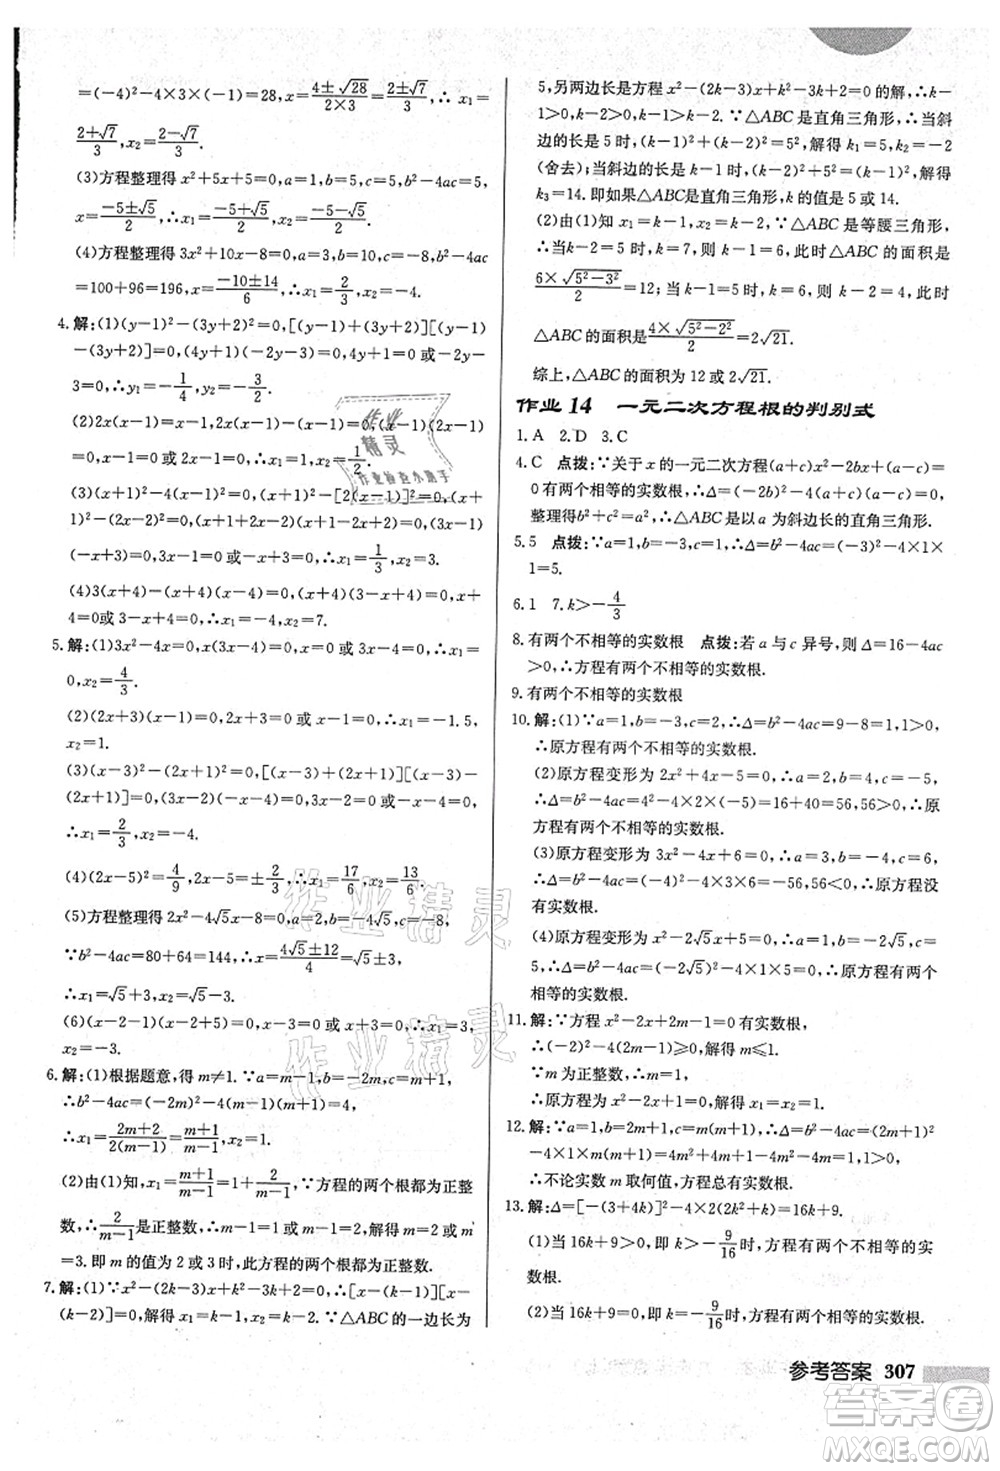 =(-4)²-4×3×(-1)=28,x=(4±√28)/(2×3)=(2±√7)/3,∴x₁=
(2+√7)/3,x₂=(2-√7)/3.
(3)方程整理得x²+5x+5=0,a=1,b=5,c=5,b²-4ac=5,
x=(-5±√5)/2,∴x₁=(-5+√5)/2,x₂=(-5-√5)/2.
(4)方程整理得3x²+10x-8=0,a=3,b=10,c=-8,b²-4ac
=100+96=196,x=(-10±14)/6,∴x₁=2/3,x₂=-4.
4.解:(1)(y-1)²-(2+3y)²=0,[(y-1)+(2+3y)][(y-1)
-(2+3y)]=0,(4y+1)(-2y-3)=0,4y+1=0或-2y-3
=0,∴y₁=-1/4,y₂=-3/2.
(2)(x-1)(2x-1)=0,x-1=0或2x-1=0,∴x₁=1,x₂=1/2.
(3)(x+1)²-[2(x-1)]²=0,[(x+1)+2(x-1)][(x
+1)-2(x-1)]=0,(x+1+2x-2)(x+1-2x+2)=0,(3x-1)
(-x+3)=0,3x-1=0或-x+3=0,∴x₁=1/3,x₂=3.
(4)3(x+4)-(x+4)(x-4)=0,(x+4)(3-x+4)=0,x+4=
0或3-x+4=0,∴x₁=-4,x₂=7.
5.解:(1)3x²-4x=0,x(3x-4)=0,x=0或3x-4=0,∴x₁=
0,x₂=4/3.
(2)(2x+3)(x-1)=0,2x+3=0或x-1=0,∴x₁=-1.5,
x₂=1.
(3)(x-3)²-(2x+1)²=0,[(x-3)+(2x+1)][(x-3)-
(2x+1)]=0,(3x-2)(-x-4)=0,3x-2=0或-x-4=
0,∴x₁=2/3,x₂=-4.
(4)(2x-5)²=4/9,2x-5=±2/3,∴x₁=17/6,x₂=13/6.
(5)方程整理得2x²-4√5x-8=0,a=2,b=-4√5,c=-8,
∵b²-4ac=80+64=144,∴x=(4√5±12)/4=√5±3,
∴x₁=√5+3,x₂=√5-3.
(6)(x-1)(x-1-2x+2)=0,x-1=0或-x+1=0,∴x₁=
x₂=1.
6.解:(1)根据题意,得m≠1.∵a=m-1,b=-2m,c=m+1,
∴b²-4ac=(-2m)²-4(m-1)(m+1)=4,
∴x₁=(2m+2)/(2(m-1))=(m+1)/(m-1),x₂=1.
(2)由(1)知,x₁=(m+1)/(m-1)=1+2/(m-1),∵方程的两个根都为正整
数,∴2/(m-1)是正整数,∴m-1=1或m-1=2,∴m=2或m
=3.即m的值为2或3时,此方程的两个根都为正整数.
7.解:(1)∵x²-(2k-3)x+k²-3k+2=0,∴[x-(k-1)][x-
(k-2)]=0,解得x₁=k-1,x₂=k-2.∵△ABC的一边长为
5,另两边长是方程x²-(2k-3)x+k²-3k+2=0的解,∴k-
1>0,且k-2>0,∴k>2.∵△ABC是直角三角形,∴当斜
边的长是5时,(k-1)²+(k-2)²=5²,解得k₁=5,k₂=-2
(舍去);当斜边的长是k-1时,5²+(k-2)²=(k-1)²,解得
k₃=14.即如果△ABC是直角三角形,k的值是5或14.
(2)由(1)知x₁=k-1,x₂=k-2,∵△ABC是等腰三角形,
∴当k-1=5时,k=6,则k-2=4,此时△ABC的面积是
(4×√(5²-2²))/2=2√21;当k-2=5时,k=7,则k-1=6,此时△ABC的面积是
(6×√(5²-3²))/2=12.
综上,△ABC的面积为12或2√21.
作业14 一元二次方程根的判别式
1.A 2.D 3.C
4.C 点拨:∵关于x的一元二次方程(a+c)x²-2bx+(a-c)=
0有两个相等的实数根,∴Δ=(-2b)²-4(a+c)(a-c)=0,
整理得a²=b²+c²,∴△ABC是以a为斜边长的直角三角形.
5.5 点拨:∵a=1,b=-3,c=1,∴Δ=b²-4ac=(-3)²-4×1×
1=5.
6.1 7.k>-4/3
8.有两个不相等的实数根 点拨:若a与c异号,则Δ=16-4ac
>0,∴方程有两个不相等的实数根.
9.有两个不相等的实数根
10.解:(1)∵a=1,b=-3,c=2,∴Δ=b²-4ac=9-8=1,1>0,
∴原方程有两个不相等的实数根.
(2)原方程变形为2x²+4x-5=0,∵a=2,b=4,c=-5,
∴Δ=b²-4ac=4²-4×2×(-5)=16+40=56,56>0,∴原
方程有两个不相等的实数根.
(3)原方程变形为3x²-4x+6=0,∵a=3,b=-4,c=6,
∴Δ=b²-4ac=(-4)²-4×3×6=-56,-56<0,∴原方程没
有实数根.
(4)原方程变形为x²-2√5x+5=0,∵a=1,b=-2√5,c=
5,∴Δ=b²-4ac=(-2√5)²-4×1×5=0,∴原方程有两个
相等的实数根.
11.解:∵方程x²-2x+2m-1=0有实数根,
∴Δ=(-2)²-4(2m-1)≥0,解得m≤1.
∵m为正整数,∴m=1.
∴原方程为x²-2x+1=0,则(x-1)²=0,解得x₁=x₂=1.
12.解:∵a=1,b=m+2,c=m,∴Δ=b²-4ac=(m+2)²
-4×1×m=m²+4m+4-4m=m²+4>0,
∴不论实数m取何值,方程总有两个不相等的实数根.
13.解:Δ=[-(3+4k)]²-4×2×2k²=16k+9.
(1)当16k+9>0,即k>-9/16时,方程有两个不相等的实
数根.
(2)当16k+9=0,即k=-9/16时,方程有两个相等的实数根.
参考答案 307
作业
精灵
作业检查小助手
作业精灵
作业精灵
答案圈
MXQE.COM